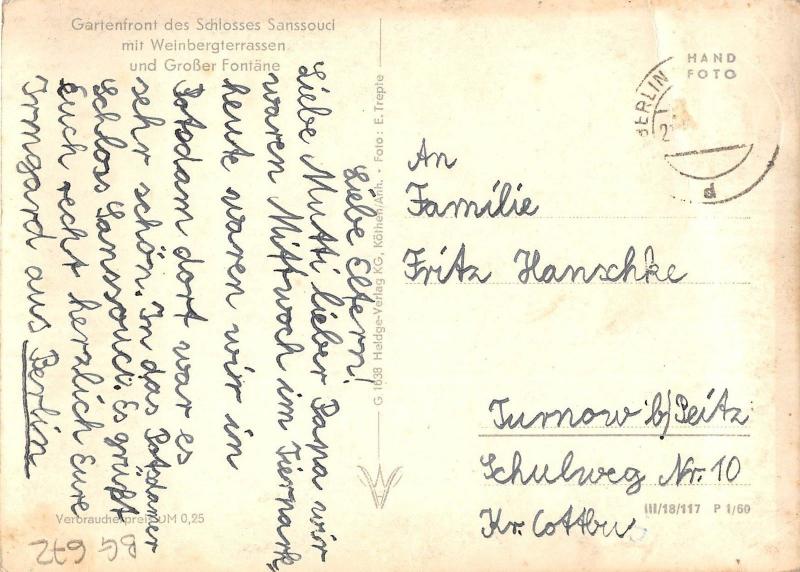 Gartenfront des Schlosses Sanssouci
mit Weinbergterrassen
und Großer Fontäne
Liebe Eltern!
Liebe Mutti lieber Papa wir
waren Mittwoch im Tierpark,
heute waren wir in
Potsdam dort war es
sehr schön. In das Potsdamer
Schloss Sanssouci. Es grüßt
Euch recht herzlich Eure
Irmgard aus Berlin
Verbraucherpreis DM 0,25
BG 672
G 1638 Heldge-Verlag KG, Köthen/Anh. • Foto: E. Trepte
HAND
FOTO
BERLIN
d
An
Familie
Fritz Hanschke
Turnow b/Peitz
Schulweg Nr. 10
Kr. Cottbus
III/18/117 P 1/60